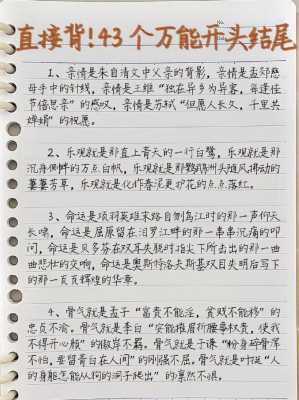 直接背!43个万能开头结尾
1、亲情是朱自清文中父亲的背影,亲情是孟郊慈
母手中的针线,亲情是王维“独在异乡为异客,每逢佳
节倍思亲”的感叹,亲情是苏轼“但愿人长久,千里共
婵娟”的祝愿。
2、乐观就是那直上青天的一行白鹭,乐观就是那
沉舟侧畔的万点白帆,乐观就是那鹦鹉洲头随风拂动的
萋萋芳草,乐观就是化作春泥更护花的点点落红。
3、命运是项羽英雄末路自刎乌江时的那一声仰天
长啸,命运是屈原留在汨罗江畔的那一串串沉痛的叩
问,命运是贝多芬在双耳失聪时指尖下所击出的那一曲
曲悲壮的交响,命运是奥斯特洛夫斯基双目失明后写下
的那一页页辉煌的华章。
4、骨气就是孟子“富贵不能淫,贫贱不能移”的
忠贞不渝。骨气就是李白“安能摧眉折腰事权贵,使我
不得开心颜”的傲岸不羁。骨气就是于谦“粉身碎骨浑
不怕,要留青白在人间”的刚强不屈。骨气就是叶挺“人
的身躯怎能从狗的洞子爬出”的凛然不惧。